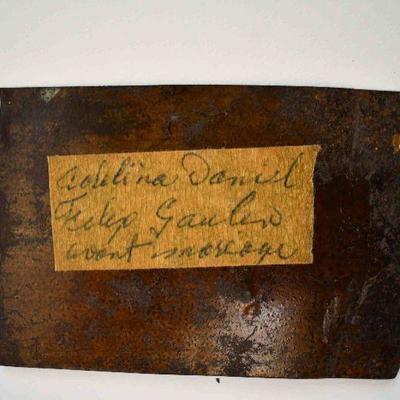 Adelina Daniel
Felix Gaulin
avant mariage